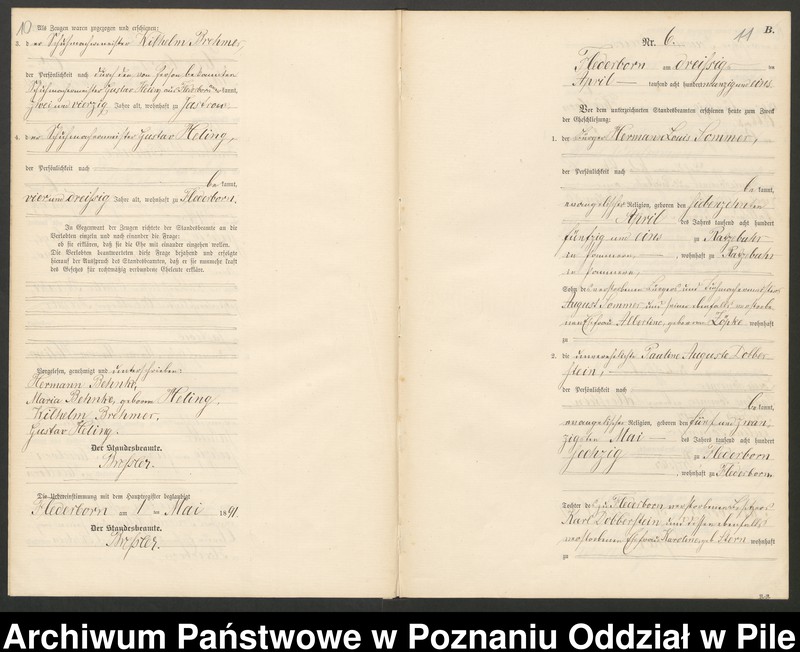 10
Als Zeugen waren zugezogen und erschienen:
3. der Schuhmachermeister Wilhelm Brehmer,
der Persönlichkeit nach durch den von Person bekannten
Schuhmachermeister Gustav Heling aus Flederborn kannt,
zwei und vierzig Jahre alt, wohnhaft zu Jastrow
4. der Schuhmachermeister Gustav Heling,
der Persönlichkeit nach
be kannt,
vier und dreissig Jahre alt, wohnhaft zu Flederborn.
In Gegenwart der Zeugen richtete der Standesbeamte an die
Verlobten einzeln und nach einander die Frage:
ob sie erklären, daß sie die Ehe mit einander eingehen wollen.
Die Verlobten beantworteten diese Frage bejahend und erfolgte
hierauf der Ausspruch des Standesbeamten, daß er sie nunmehr kraft
des Gesetzes für rechtmäßig verbundene Eheleute erkläre.
Vorgelesen, genehmigt und unterschrieben:
Hermann Behnke,
Maria Behnke, geborene Heling,
Wilhelm Brehmer,
Gustav Heling.
Der Standesbeamte.
Die Uebereinstimmung mit dem Hauptregister beglaubigt
Flederborn am 1 ten Mai 1891
Der Standesbeamte.
11
B.
Nr. 6.
Flederborn am dreissigten
April tausend acht hundert neunzig und eins
Vor dem unterzeichneten Standesbeamten erschienen heute zum Zweck
der Eheschließung:
1. der Bürger Hermann Louis Sommer,
der Persönlichkeit nach
be kannt,
evangelischer Religion, geboren den siebenzehnten
April des Jahres tausend acht hundert
fünfzig und eins zu Ratzebuhr
in Pommern, wohnhaft zu Ratzebuhr
in Pommern,
Sohn des verstorbenen Bürgers und Tuchmachermeisters
August Sommer und seiner ebenfalls verstorbe-
nen Ehefrau Albertine, geborene Köpke wohnhaft
zu
2. die unverehelichte Pauline Auguste Dobber-
stein,
der Persönlichkeit nach
be kannt,
evangelischer Religion, geboren den fünf und zwan-
zigsten Mai des Jahres tausend acht hundert
sechzig zu Flederborn
, wohnhaft zu Flederborn.
Tochter des zu Flederborn verstorbenen Besitzers
Karl Dobberstein und dessen ebenfalls
verstorbenen Ehefrau Karoline geb. Stern wohnhaft
zu
Archiwum Państwowe w Poznaniu Oddział w Pile